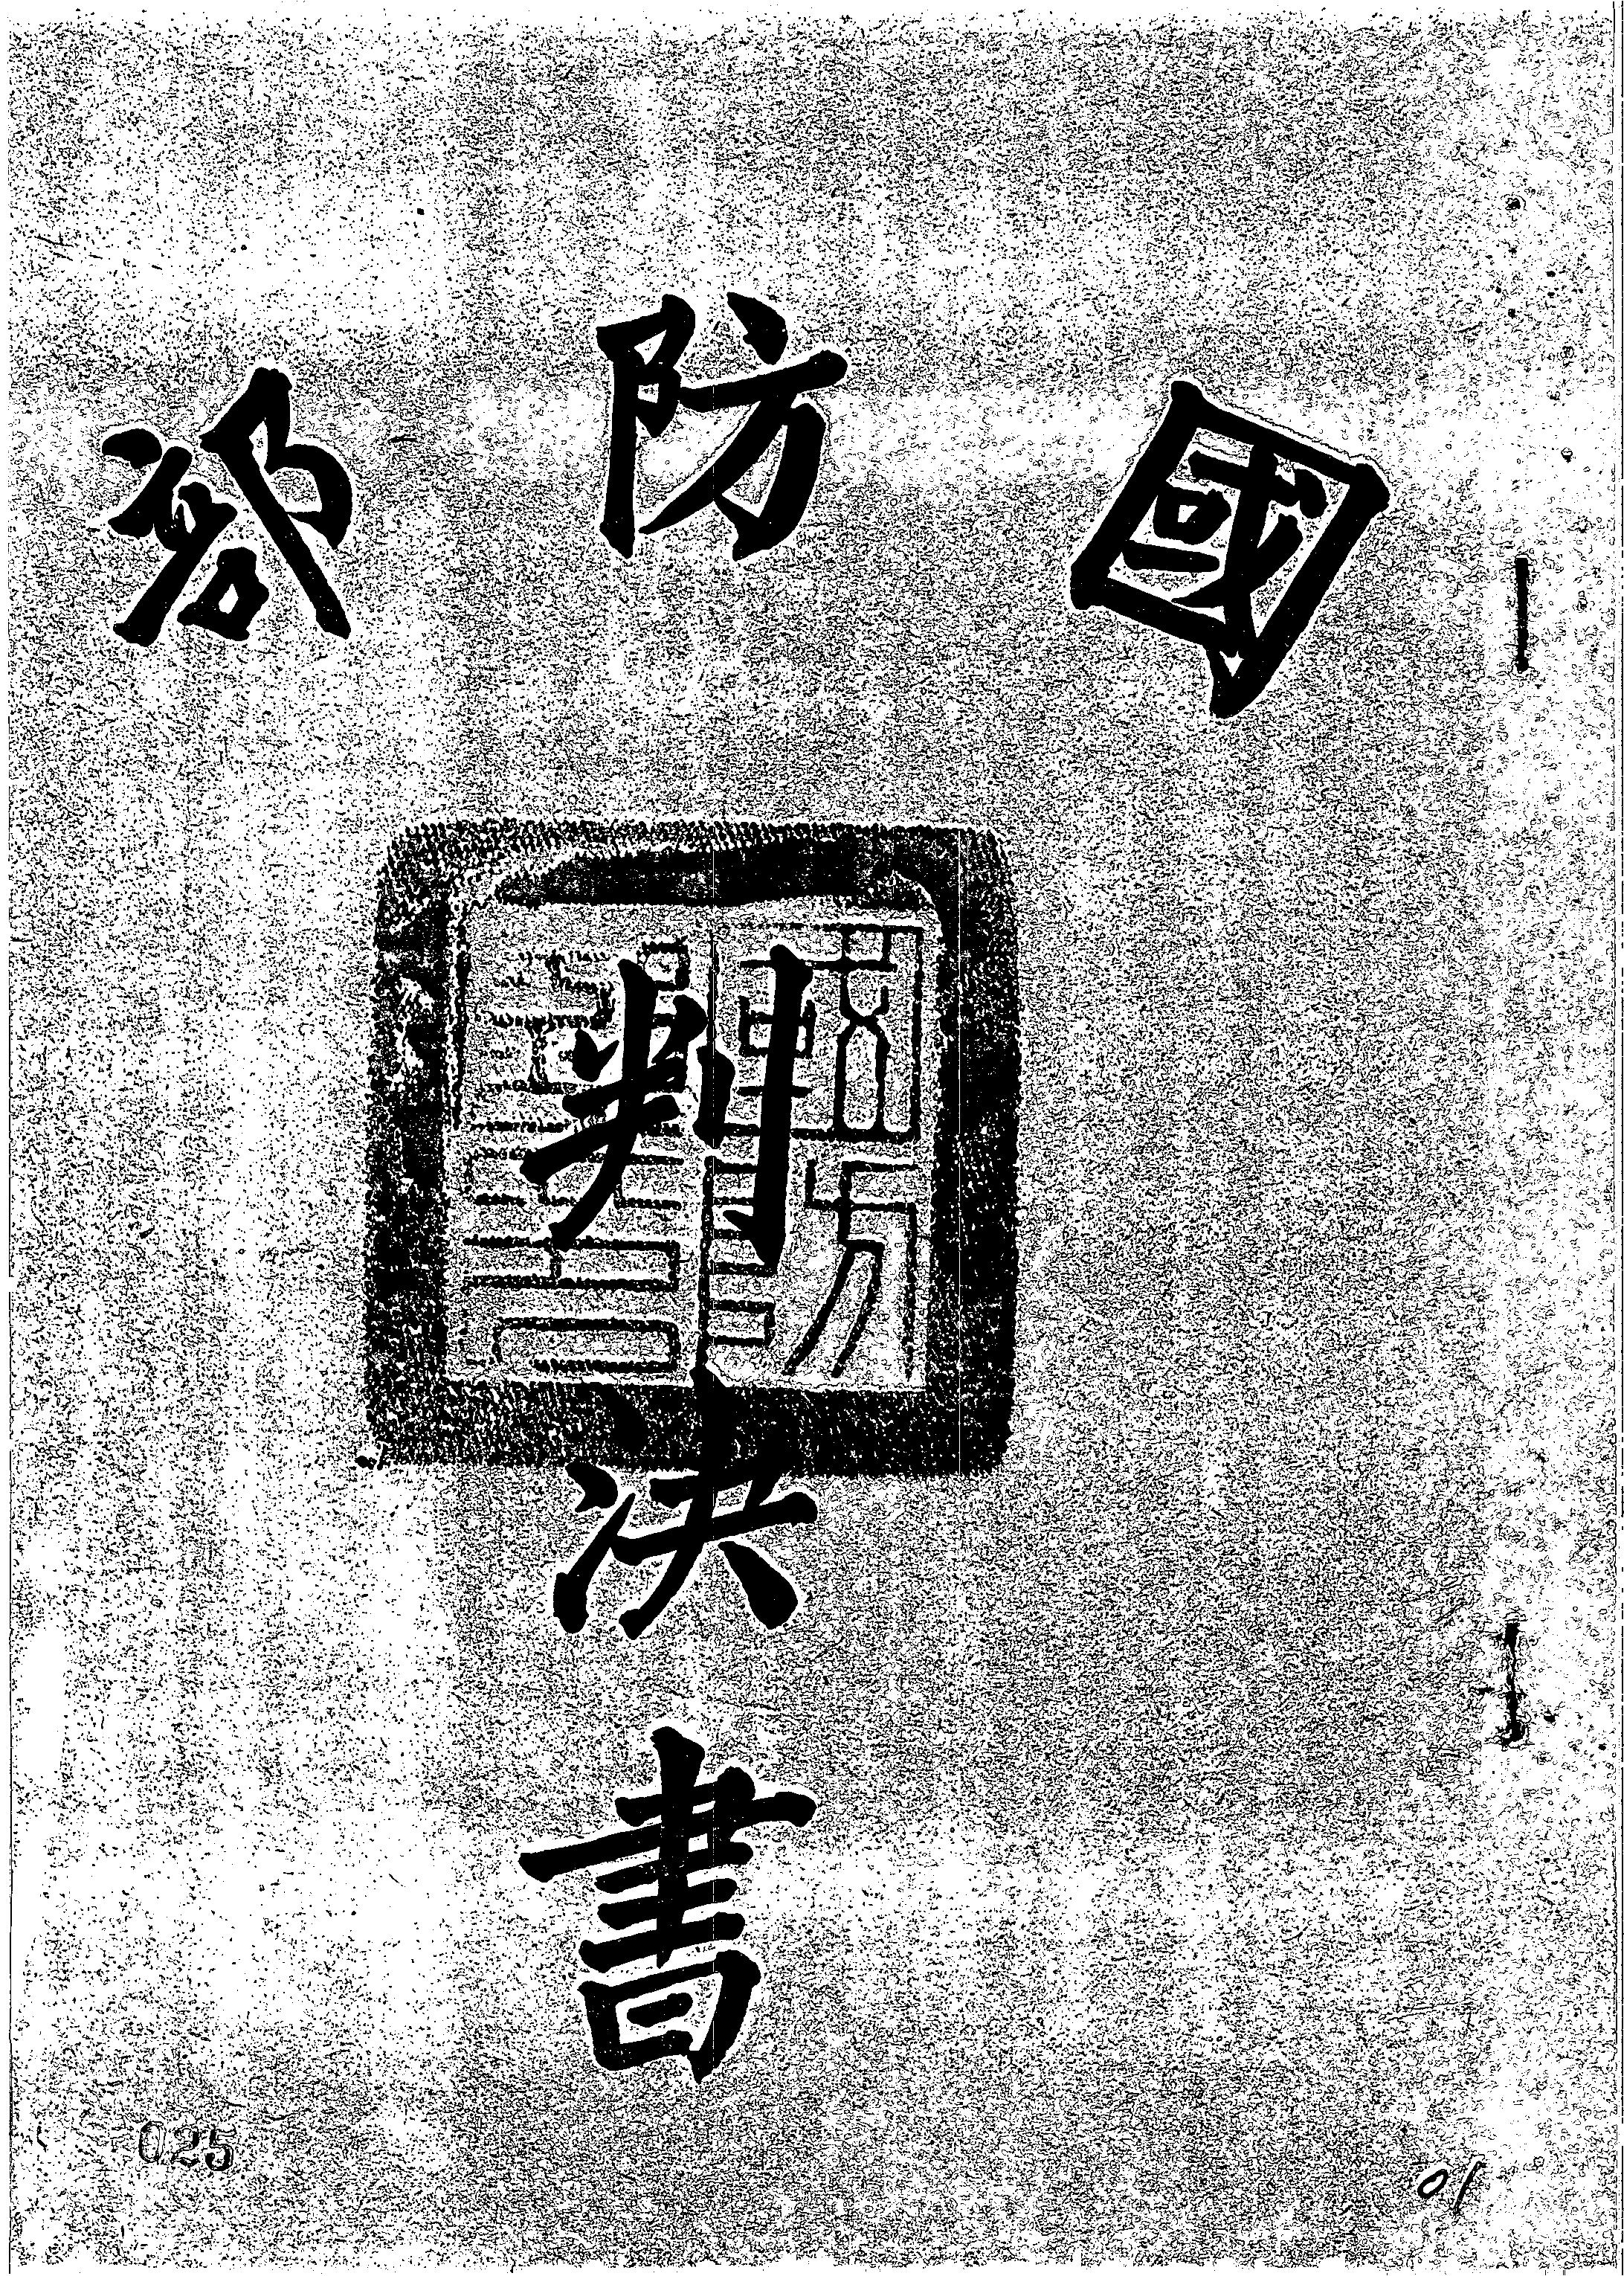 國防部
判決書
025
01